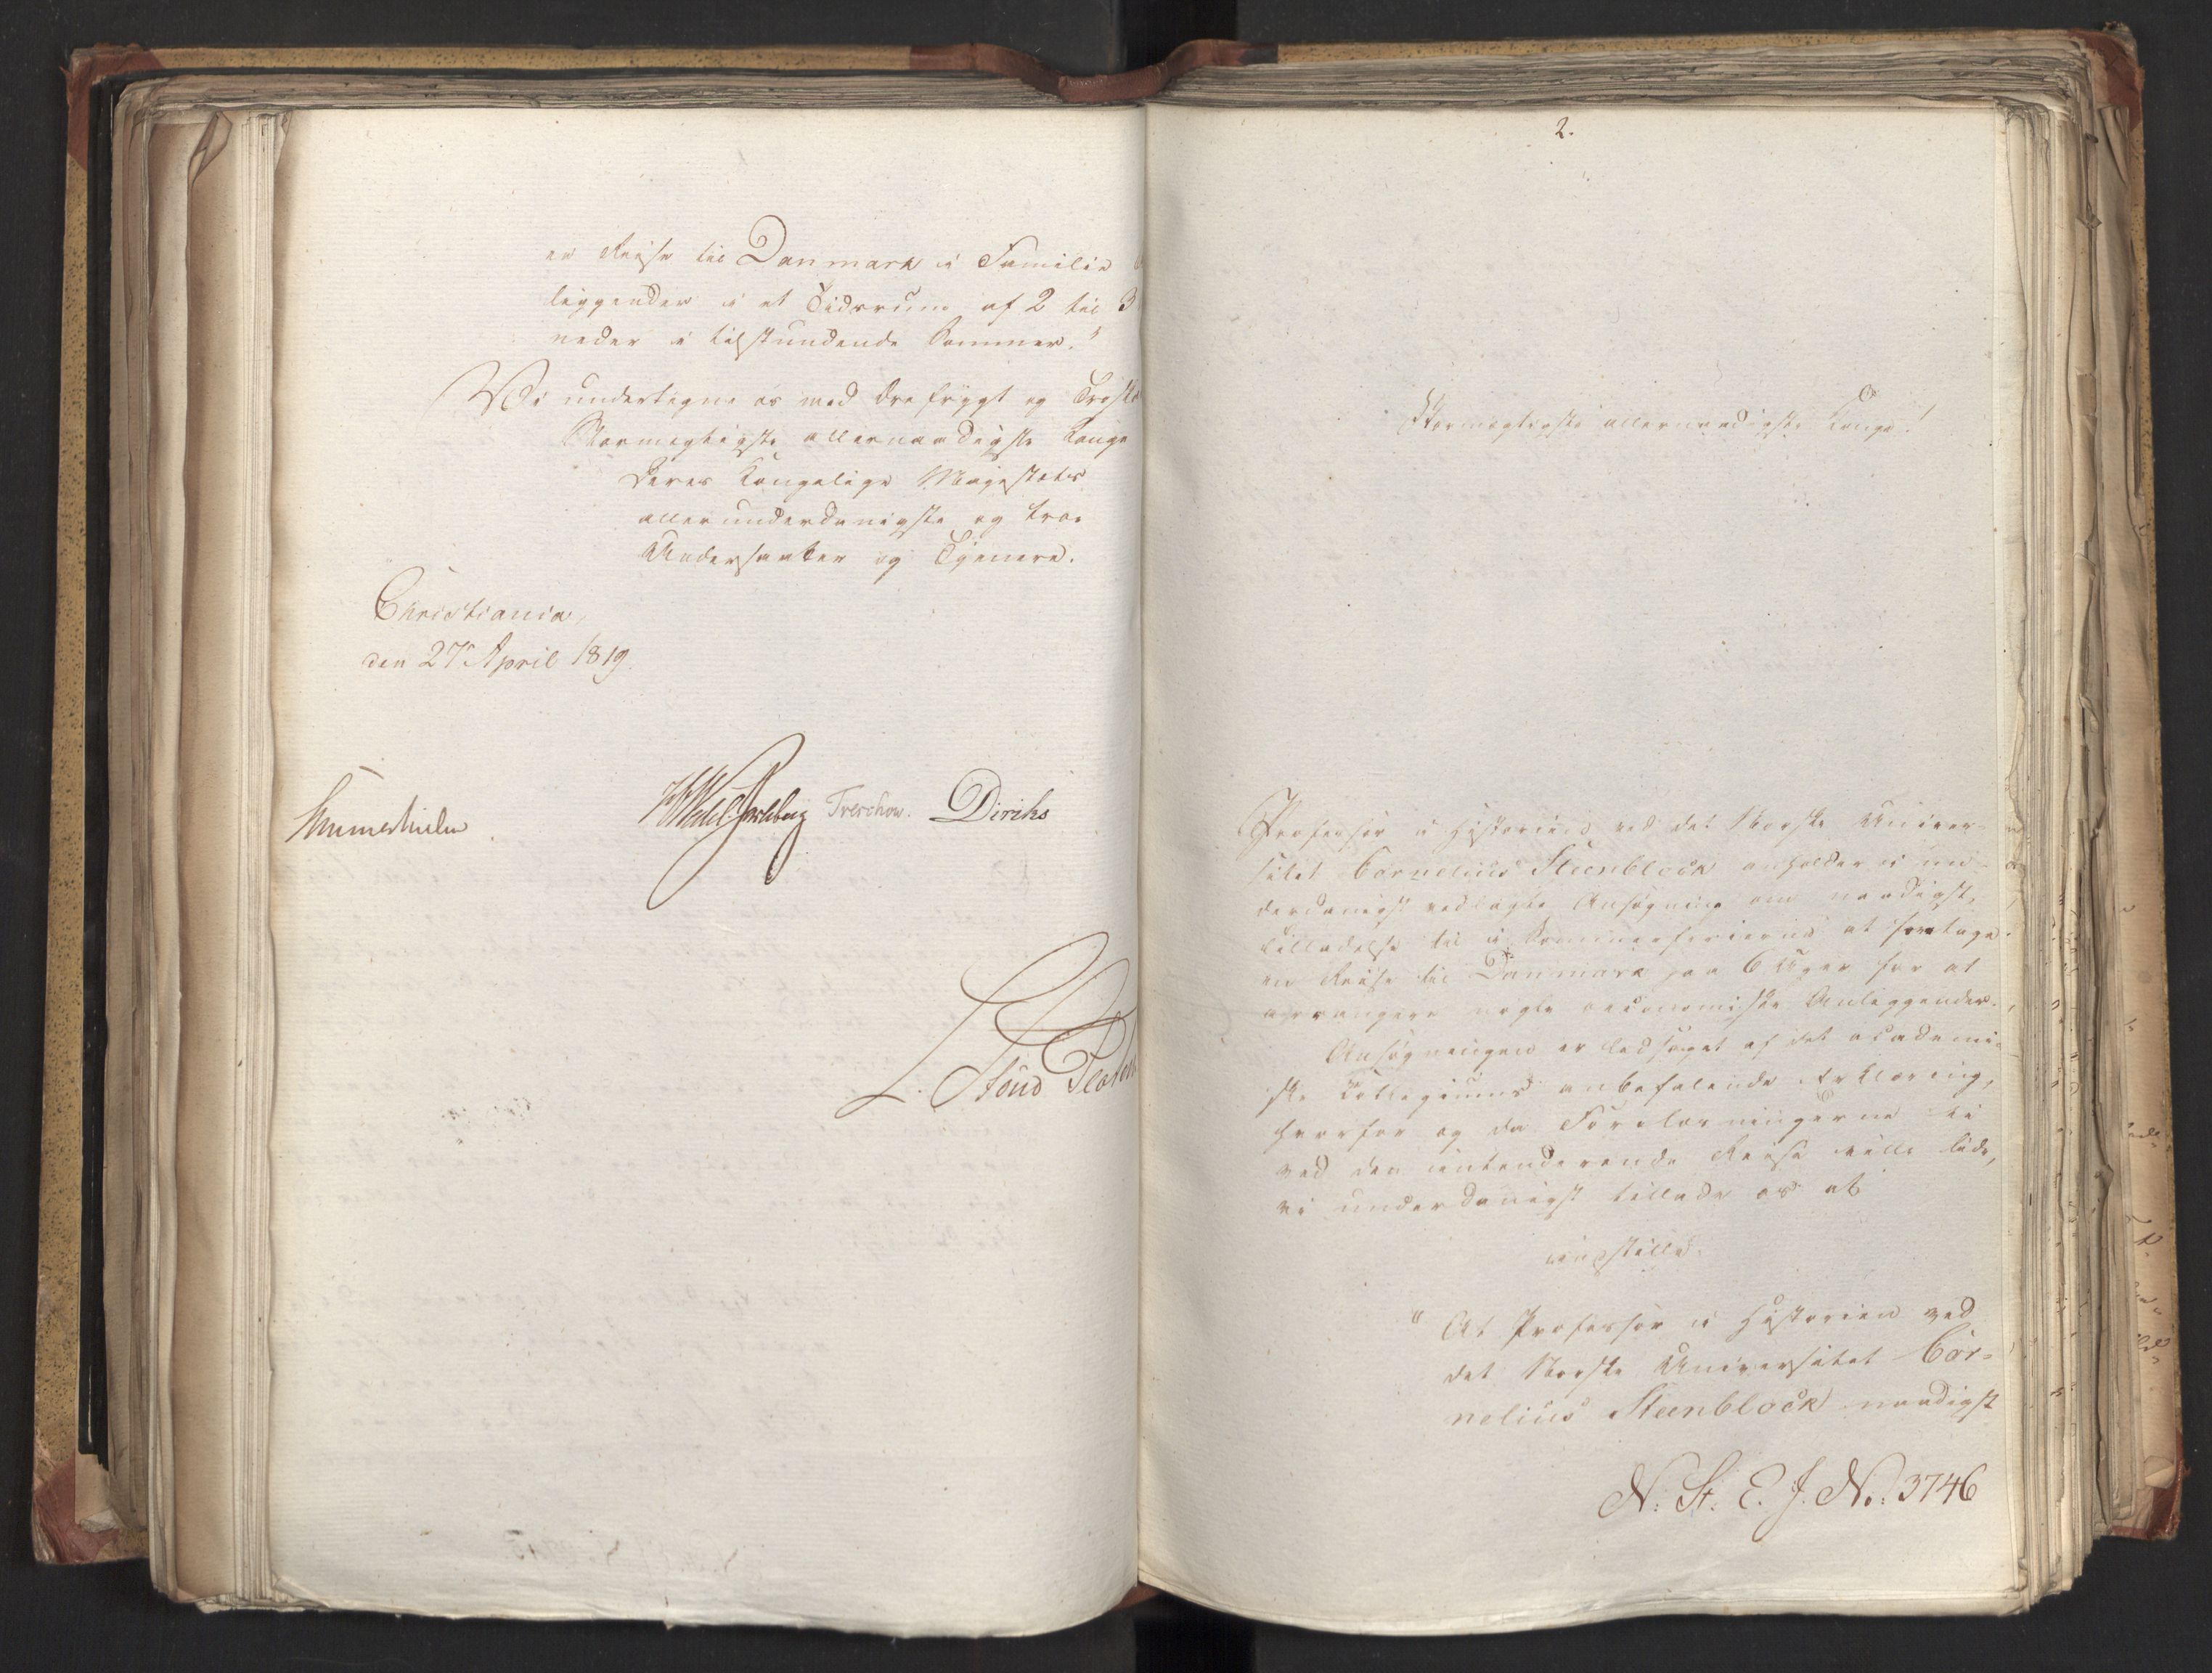 en Reise til Danmark i Familie
liggender i et Tidsrum af 2 til 3
neder i tilstundende Sommer."
Vi undertegne os med Ærefrygt og
Stormægtigste allernaadigste Konge
Deres Kongelige Majestæts
allerunderdanigste og troe
Undersaatter og Tjenere.
Christiania,
den 27 April 1819.
HWedel Jarlsberg Treschow. Diriks
L. Stoud Platou
2.
Stormægtigste allernaadigste Konge!
Professor i Historien ved det Norske Univer-
sitet Cornelius Steenblock anholder i un-
derdanigst vedlagte Ansøgning om naadigst,
Tilladelse til i Sommerferierne at foretage
en Reise til Danmark paa 6 Uger for at
arrangere nogle oeconomiske Anliggender.
Ansøgningen er ledsaget af det academi-
ske Collegiums anbefalende Erklæring,
hvorfor og da Forelæsningerne ei
ved den intenderende Reise ville lide,
vi underdanigst tillade os at
indstille:
"At Professor i Historien ved
det Norske Universitet Cor=
nelius Steenblock naadigst
N: St. E. J. No: 3746